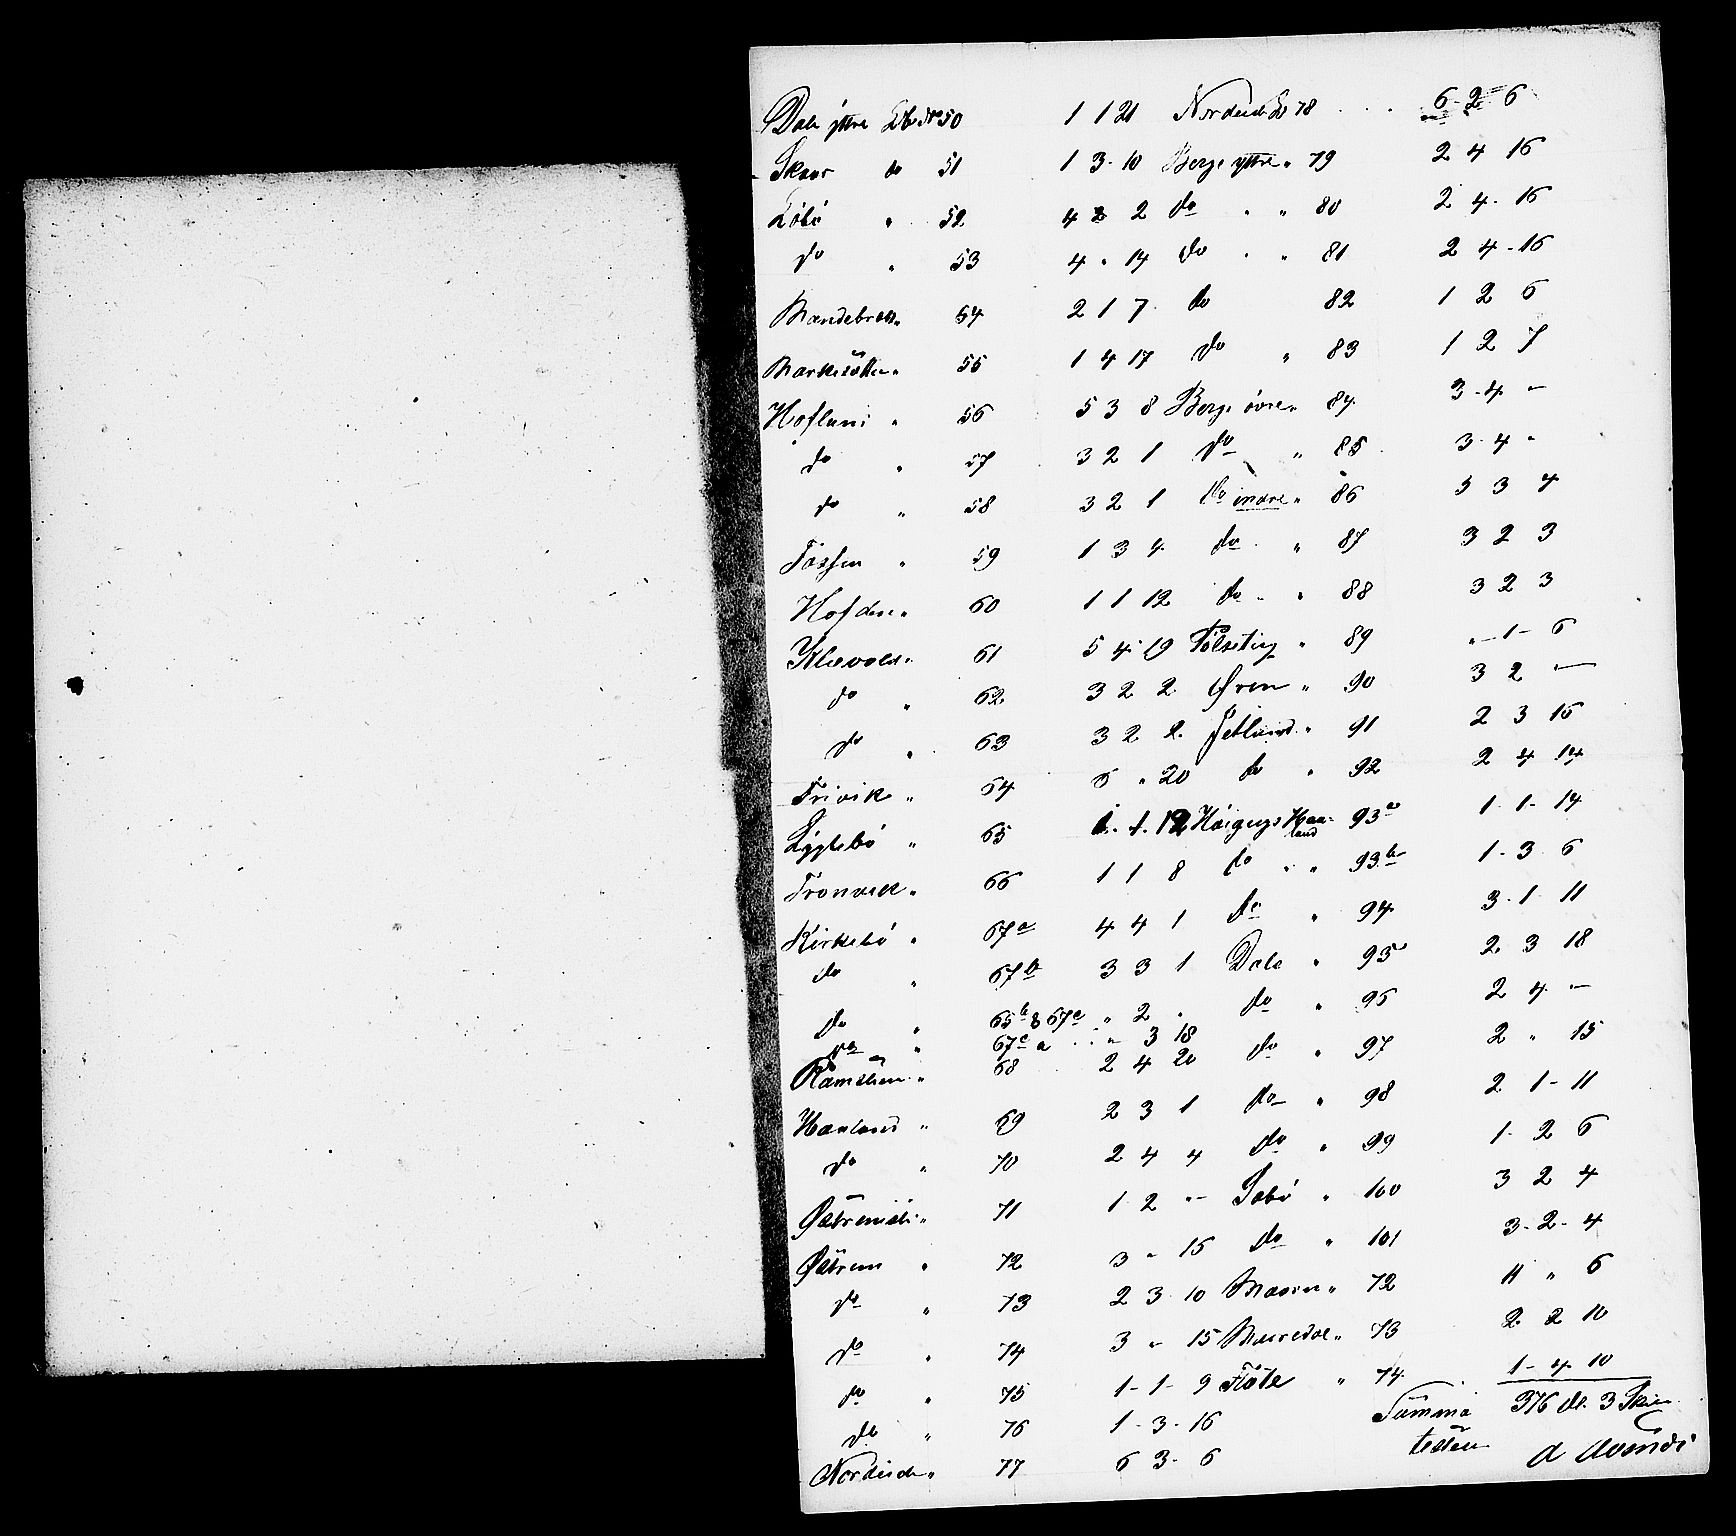 Dale yttre Lb No 50 1 1 21 Nordeide Lb 78 6 2 6
Skaar do 51 1 3 10 Berge yttre " 79 2 4 16
Löbö " 52 4 2 2 do " " 80 2 4 16
do " 53 4 " 14 do " " 81 2 4 16
54 2 1 7 do 82 1 2 6
" 55 1 4 17 do " 83 1 2 7
Hofland " 56 5 3 8 Berge övre " 84 3 4 -
do " 57 3 2 1 do " 85 3 4 "
do " 58 3 2 1 do indre " 86 3 3 4
Fossen " 59 1 3 4 do " 87 3 2 3
Hofden " 60 1 1 12 do " " 88 3 2 3
Klævold " 61 5 4 19 " 89 " 1 6
do " 62 3 2 2 Øren " 90 3 2 -
do " 63 3 2 2 Jetlund " 91 2 3 15
" 64 6 " 20 do " 92 2 4 14
" 65 1 12 Haaland 93a 1 1 14
Tronvik " 66 1 1 8 do " " 93b 1 3 6
Kirkebö " 67a 4 4 1 do " 94 3 1 11
do " 67b 3 3 1 Dale " 95 2 3 18
do " 65b & 67a " 2 " do " 96 2 4 -
do " 67c " 3 18
" 68 2 4 20 do " 97 2 " 15
Haaland " 69 2 3 1 do " 98 2 1 11
do " 70 2 4 4 do " 99 1 2 6
" 71 1 2 " " 100 3 2 4
Østrem " 72 3 " 15 do " 101 3 2 4
do " 73 2 3 10 " 72 4 " 6
do " 74 3 " 15 " 73 2 2 10
do " 75 1 1 9 Flöte " 74 1 4 10
do " 76 1 3 16 Summa 376 dl. 3 Skill
Nordeide " 77 6 3 6